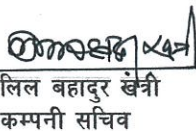 लिल बहादुर खत्री
कम्पनी सचिव